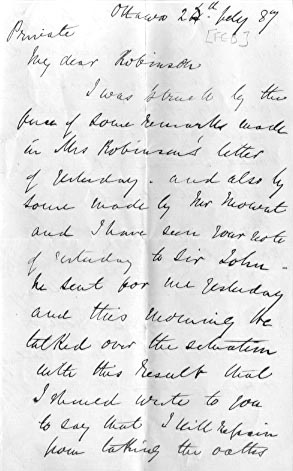 Ottawa 2 th July 87
[FEB]
Private
My dear Robinson
I was struck by the
force of some remarks made
in Mrs Robinson's letter
of yesterday - and also by
some made by Mr Mowat
and I have seen your note
of yesterday to Sir John -
he sent for me yesterday
and this morning we
talked over the situation
with this result that
I should write to you
to say that I will
from taking the oaths